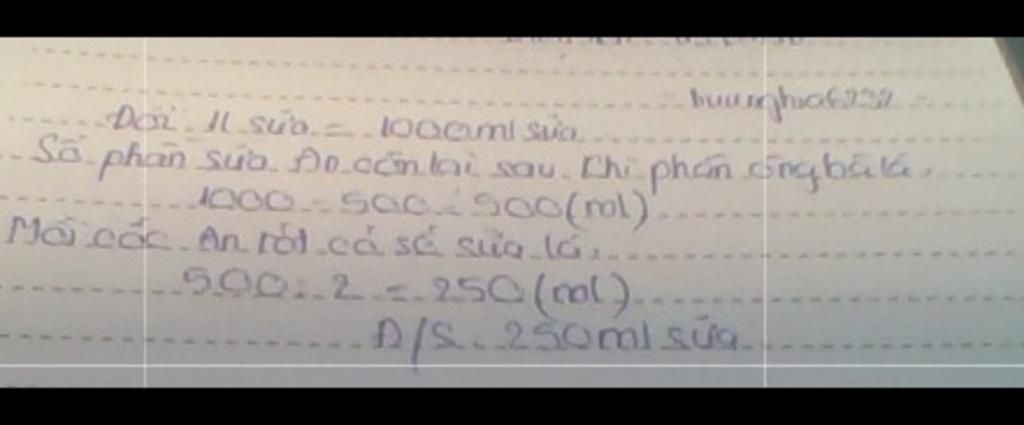 buunghia6232
Đổi 1l sữa = 1000ml sữa
Số phần sữa An còn lại sau khi phần ông bà là,
1000 - 500 = 500 (ml)
Mỗi cốc An rót có số sữa là,
500 : 2 = 250 (ml)
Đ/S: 250ml sữa